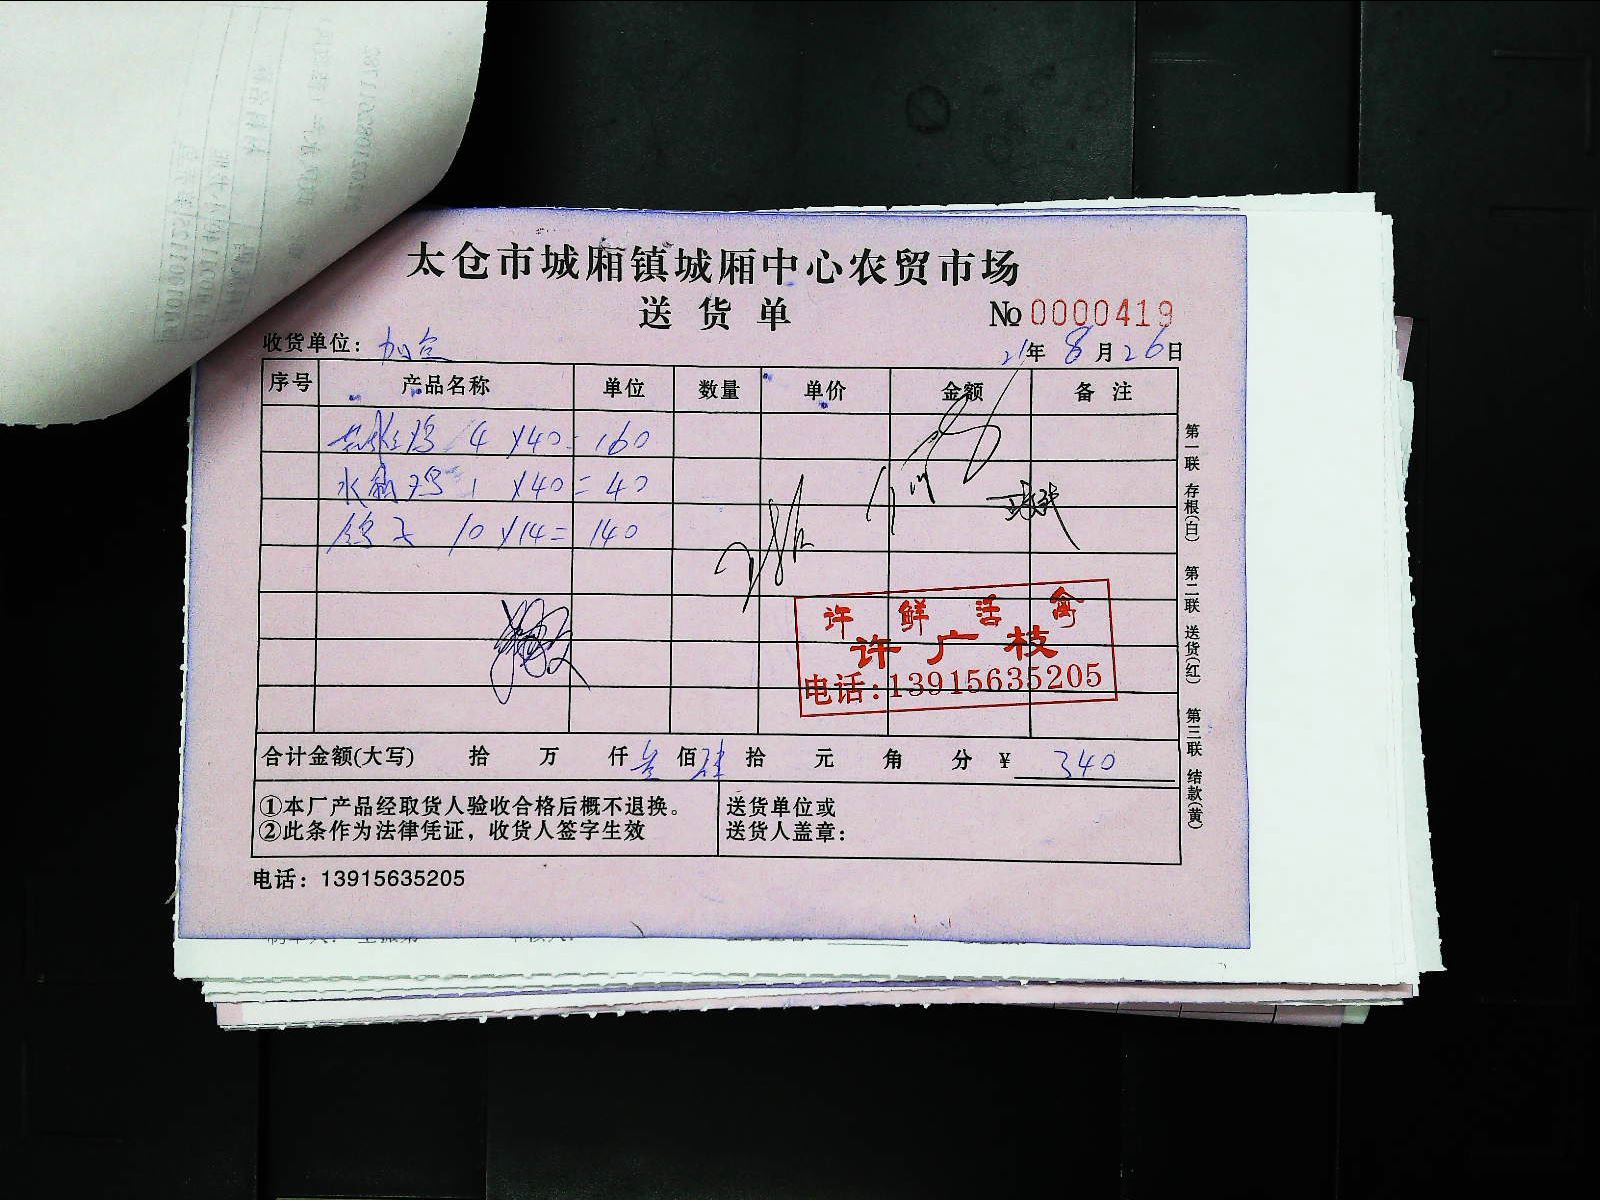 太仓市城厢镇城厢中心农贸市场
送货单 №0000419
收货单位： 21年8月26日
序号 产品名称 单位 数量 单价 金额 备注
4 ×40=160
水 鸡 1 ×40=40
鸽子 10 ×14=140
许鲜活禽
许广枝
电话：13915635205
合计金额(大写) 拾 万 仟叁佰肆拾 元 角 分 ¥ 340
①本厂产品经取货人验收合格后概不退换。
②此条作为法律凭证，收货人签字生效
送货单位或
送货人盖章：
电话：13915635205
第一联 存根(白) 第二联 送货(红) 第三联 结款(黄)